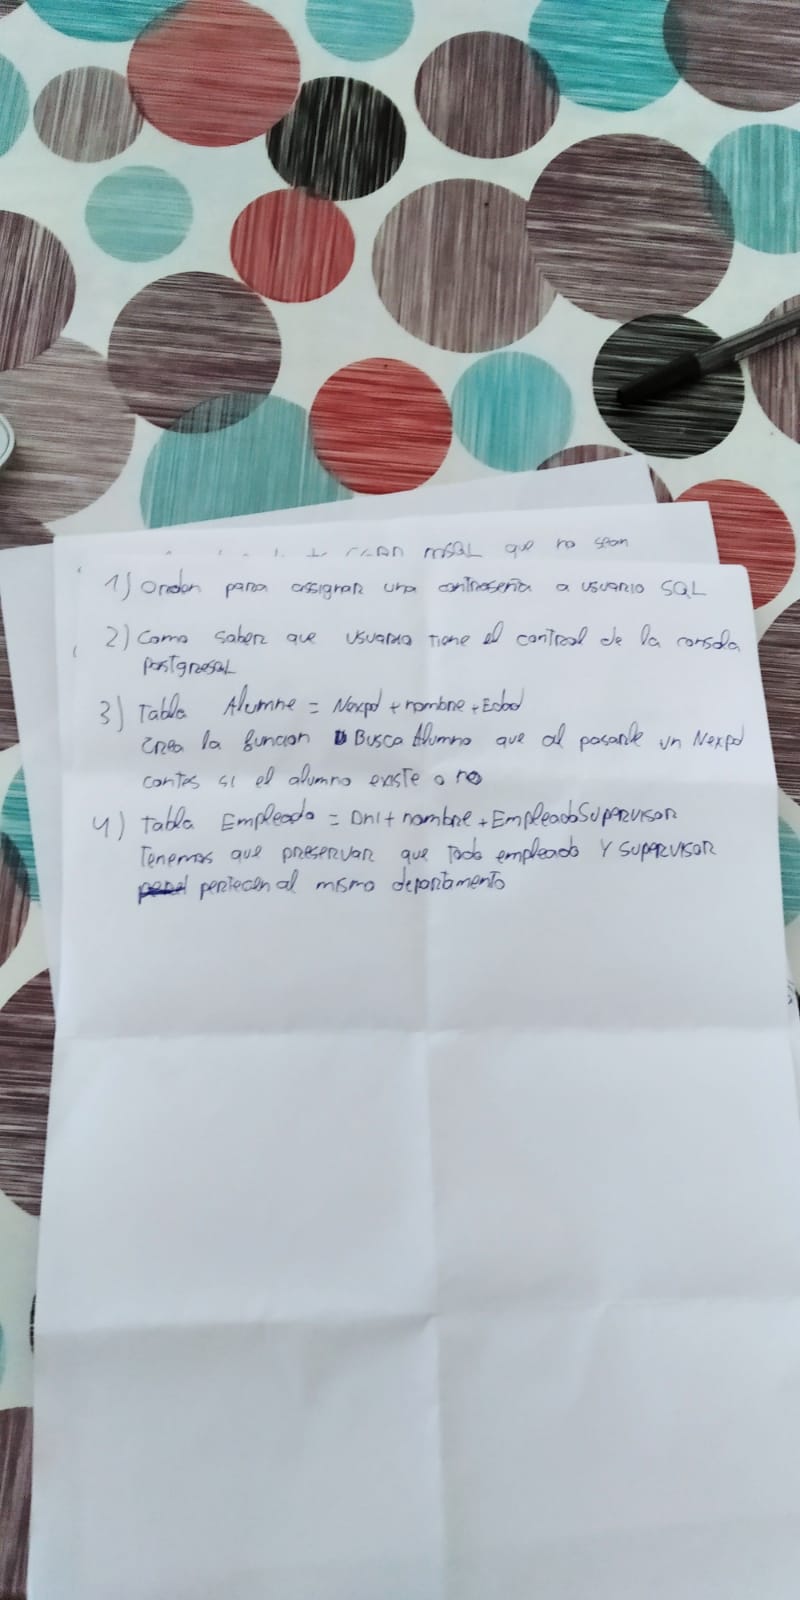 mSQL que no sean
1) Orden para assignar una contraseña a usuario SQL
2) Como saber que usuario tiene el control de la consola
Postgresql
3) Tabla Alumne = Nexpd + nombre + Edad
Crea la funcion Busca Alumno que al pasarle un Nexpd
contes si el alumno existe o no
4) Tabla Empleado = Dni + nombre + EmpleadoSupervisor
Tenemos que preservar que todo empleado y supervisor
pertecen al mismo departamento